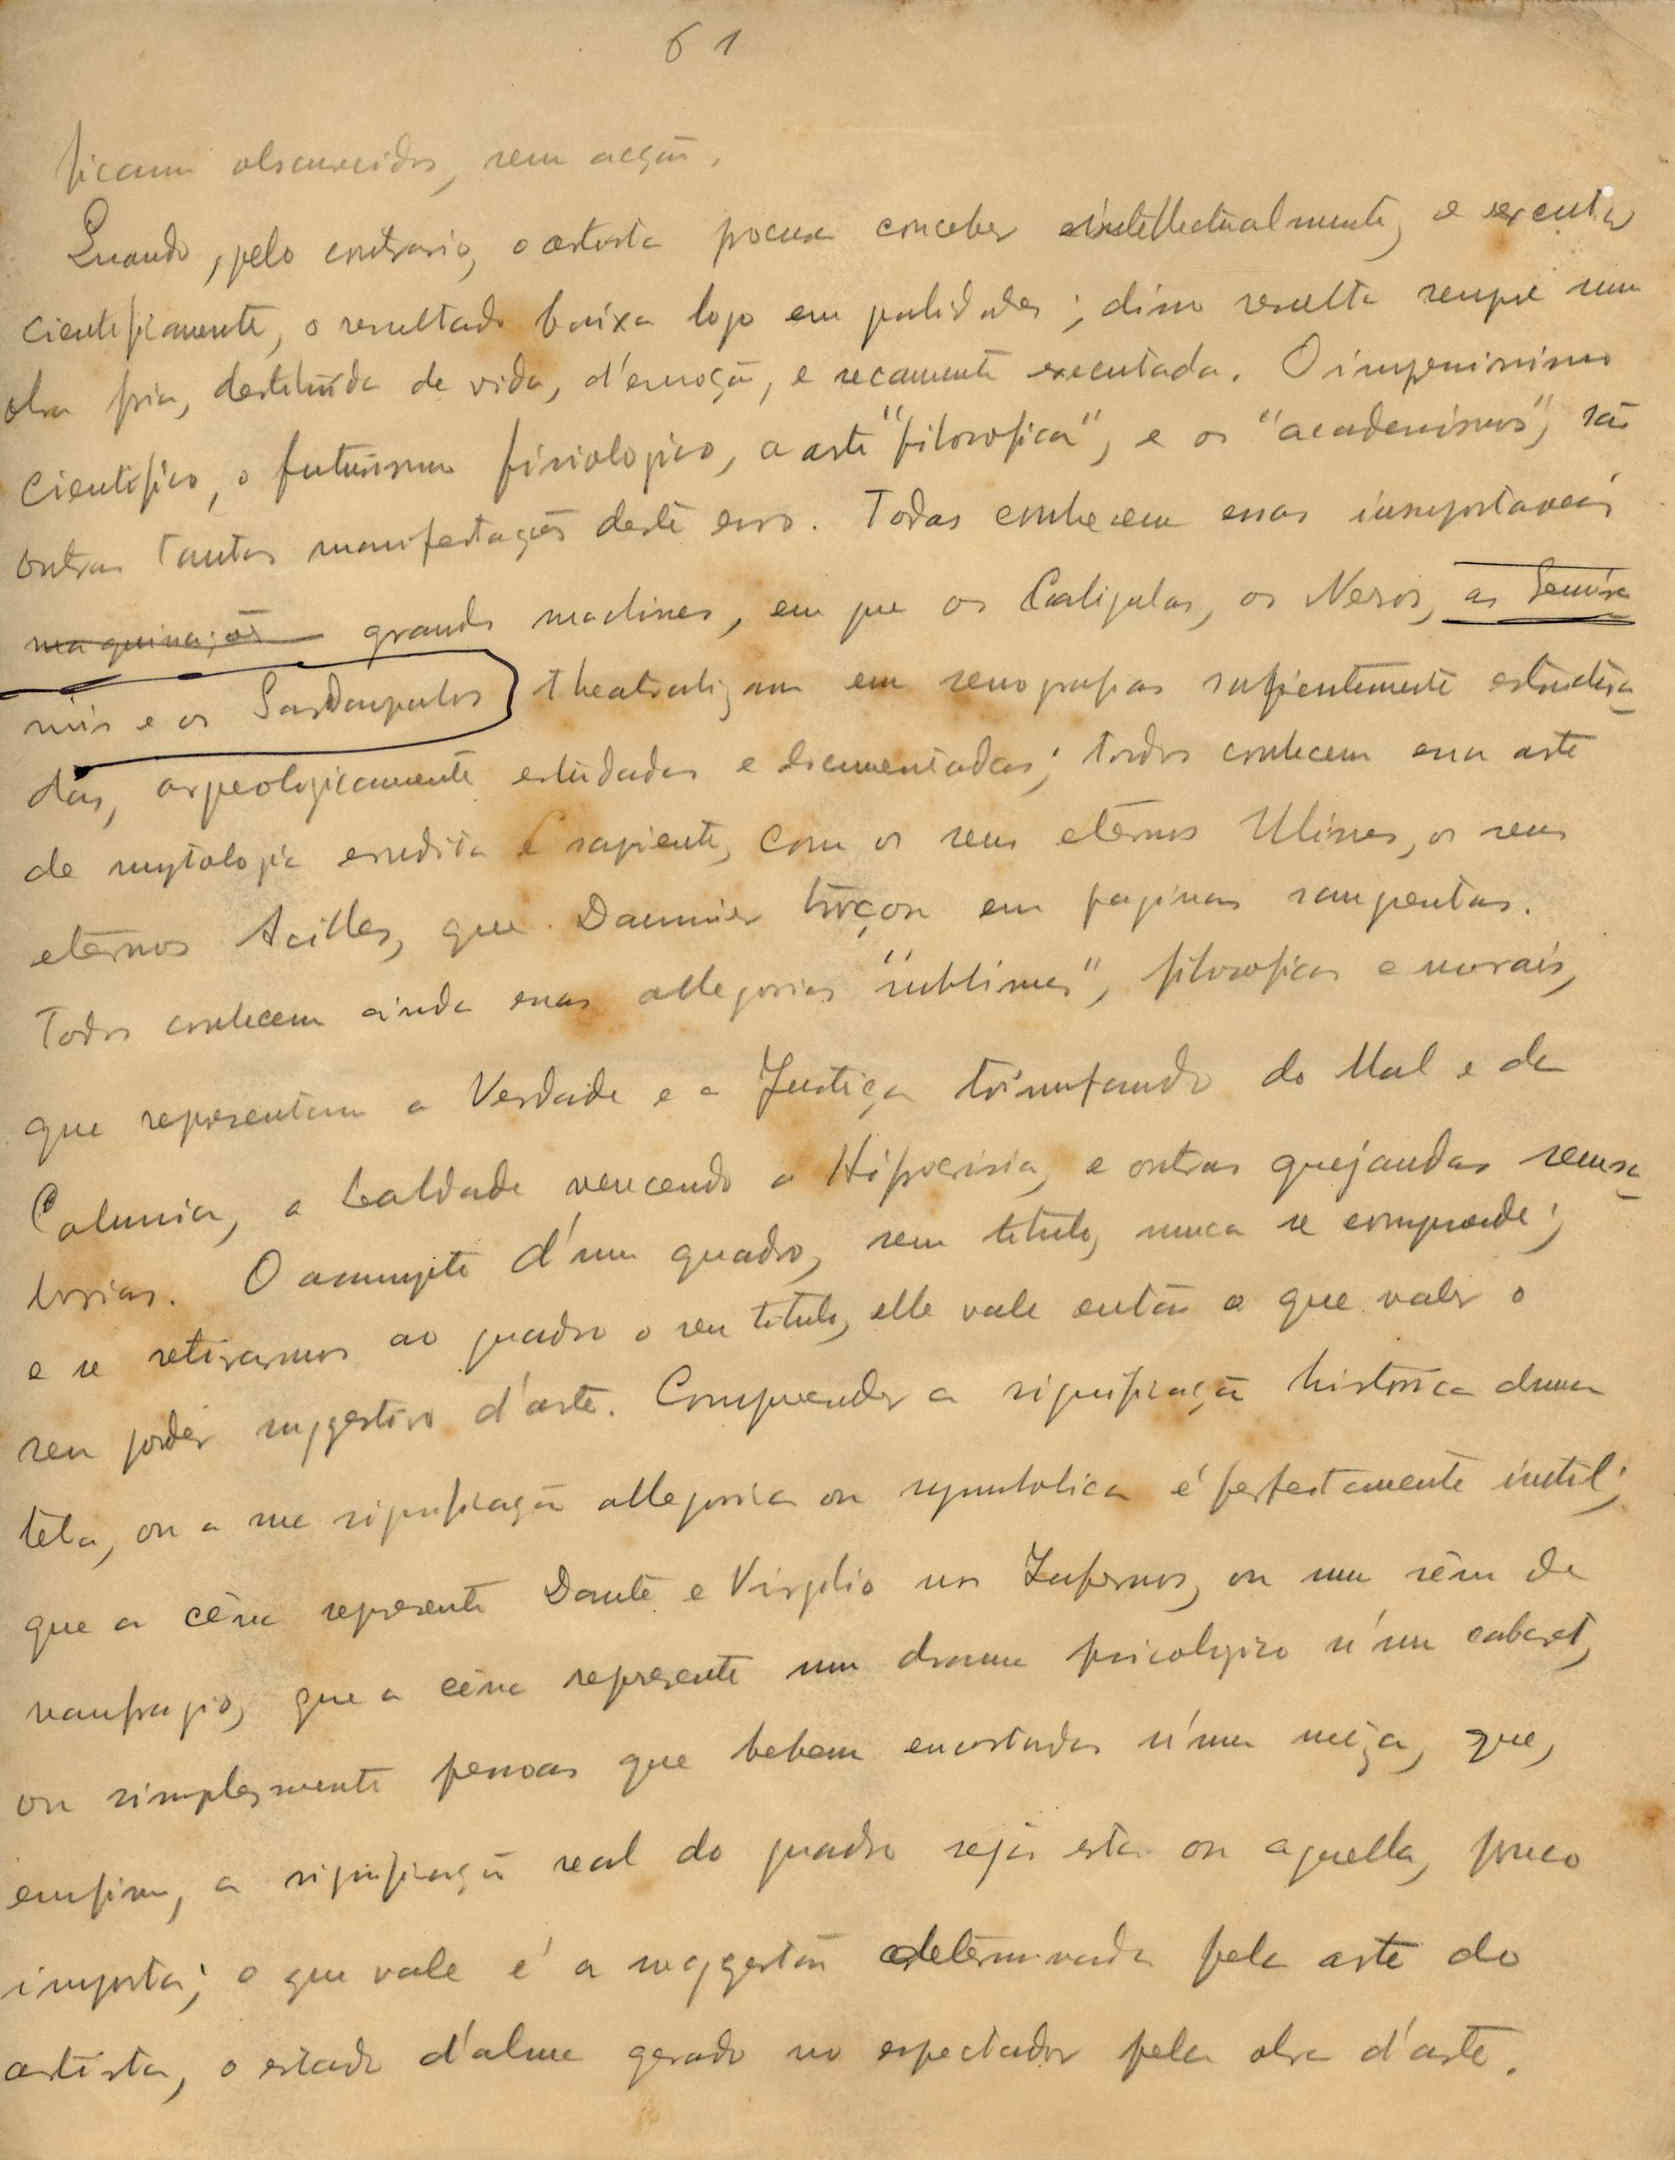 61
ficam obscurecidos, sem acção.
Quando, pelo contrario, o artista procura conceber intellectualmente, e executar
cientificamente, o resultado baixa logo em qualidades; disso resulta sempre uma
obra fria, destituída de vida, d'emoção, e secamente executada. O impressionismo
cientifico, o futurismo fisiologico, a arte "filosofica", e os "academismos", são
outras tantas manifestações deste erro. Todos conhecem essas insuportaveis
maquinações grandes machines, em que os Caligulas, os Neros, as Semira
mis e os Sardanapalos theatralizam em senografias sapientemente estudia
das, arqeologicamente estudadas e documentadas; todos conhecem essa arte
de mytologia erudita e sapiente, com os seus eternos Ulisses, os seus
eternos Acilles, que Daumier troçou em paginas sangrentas.
Todos conhecem ainda essas allegorias "sublimes", filosoficas e morais,
que representam a Verdade e a Justiça triunfando do Mal e da
Calunia, a Lealdade vencendo a Hipocrisia, e outras quejandas sensa
borias. O assumpto d'um quadro, sem titulo, nunca se comprende;
e se retirarmos ao quadro o seu titulo, elle vale então o que valer o
seu poder suggestivo d'arte. Comprender a significação historica duma
tela, ou a sua significação allegorica ou symbolica é perfeitamente inutil;
que a cêna represente Dante e Virgilio nos Infernos, ou uma cêna de
naufragio, que a cêna represente um drama psicologico n'um cabaret,
ou simplesmente pessoas que bebem encostadas n'uma meza, que,
emfim, a significação real do quadro seja esta ou aquella, pouco
importa; o que vale é a suggestão determinada pela arte do
artista, o estado d'alma gerado no espectador pela obra d'arte.